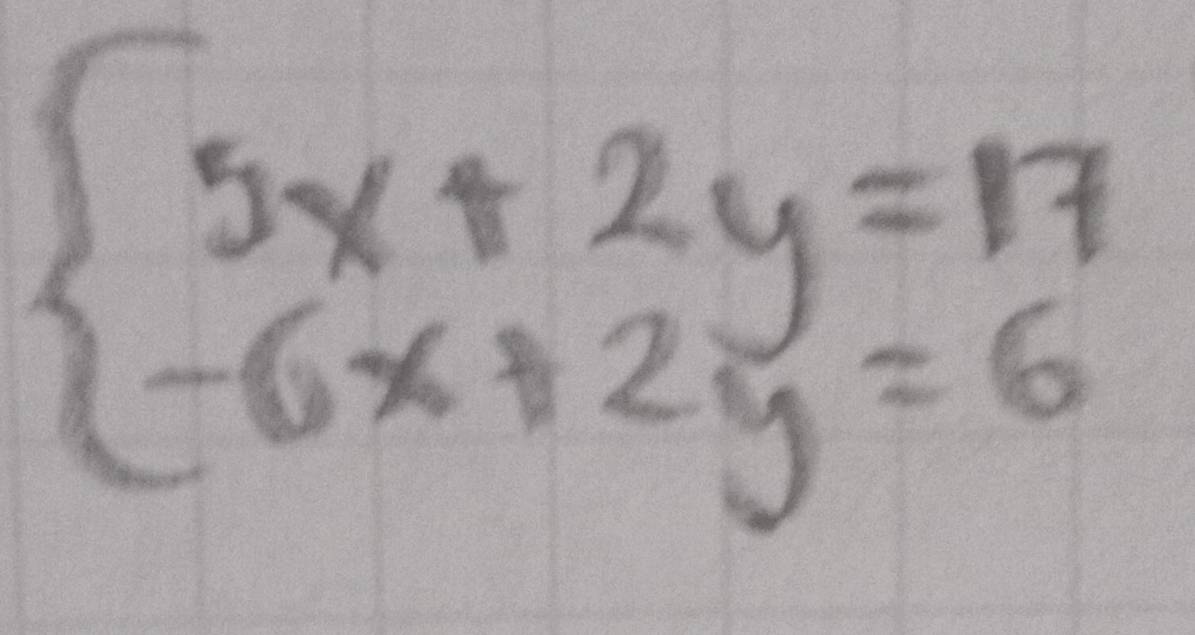 5x + 2y = 17
-6x + 2y = 6